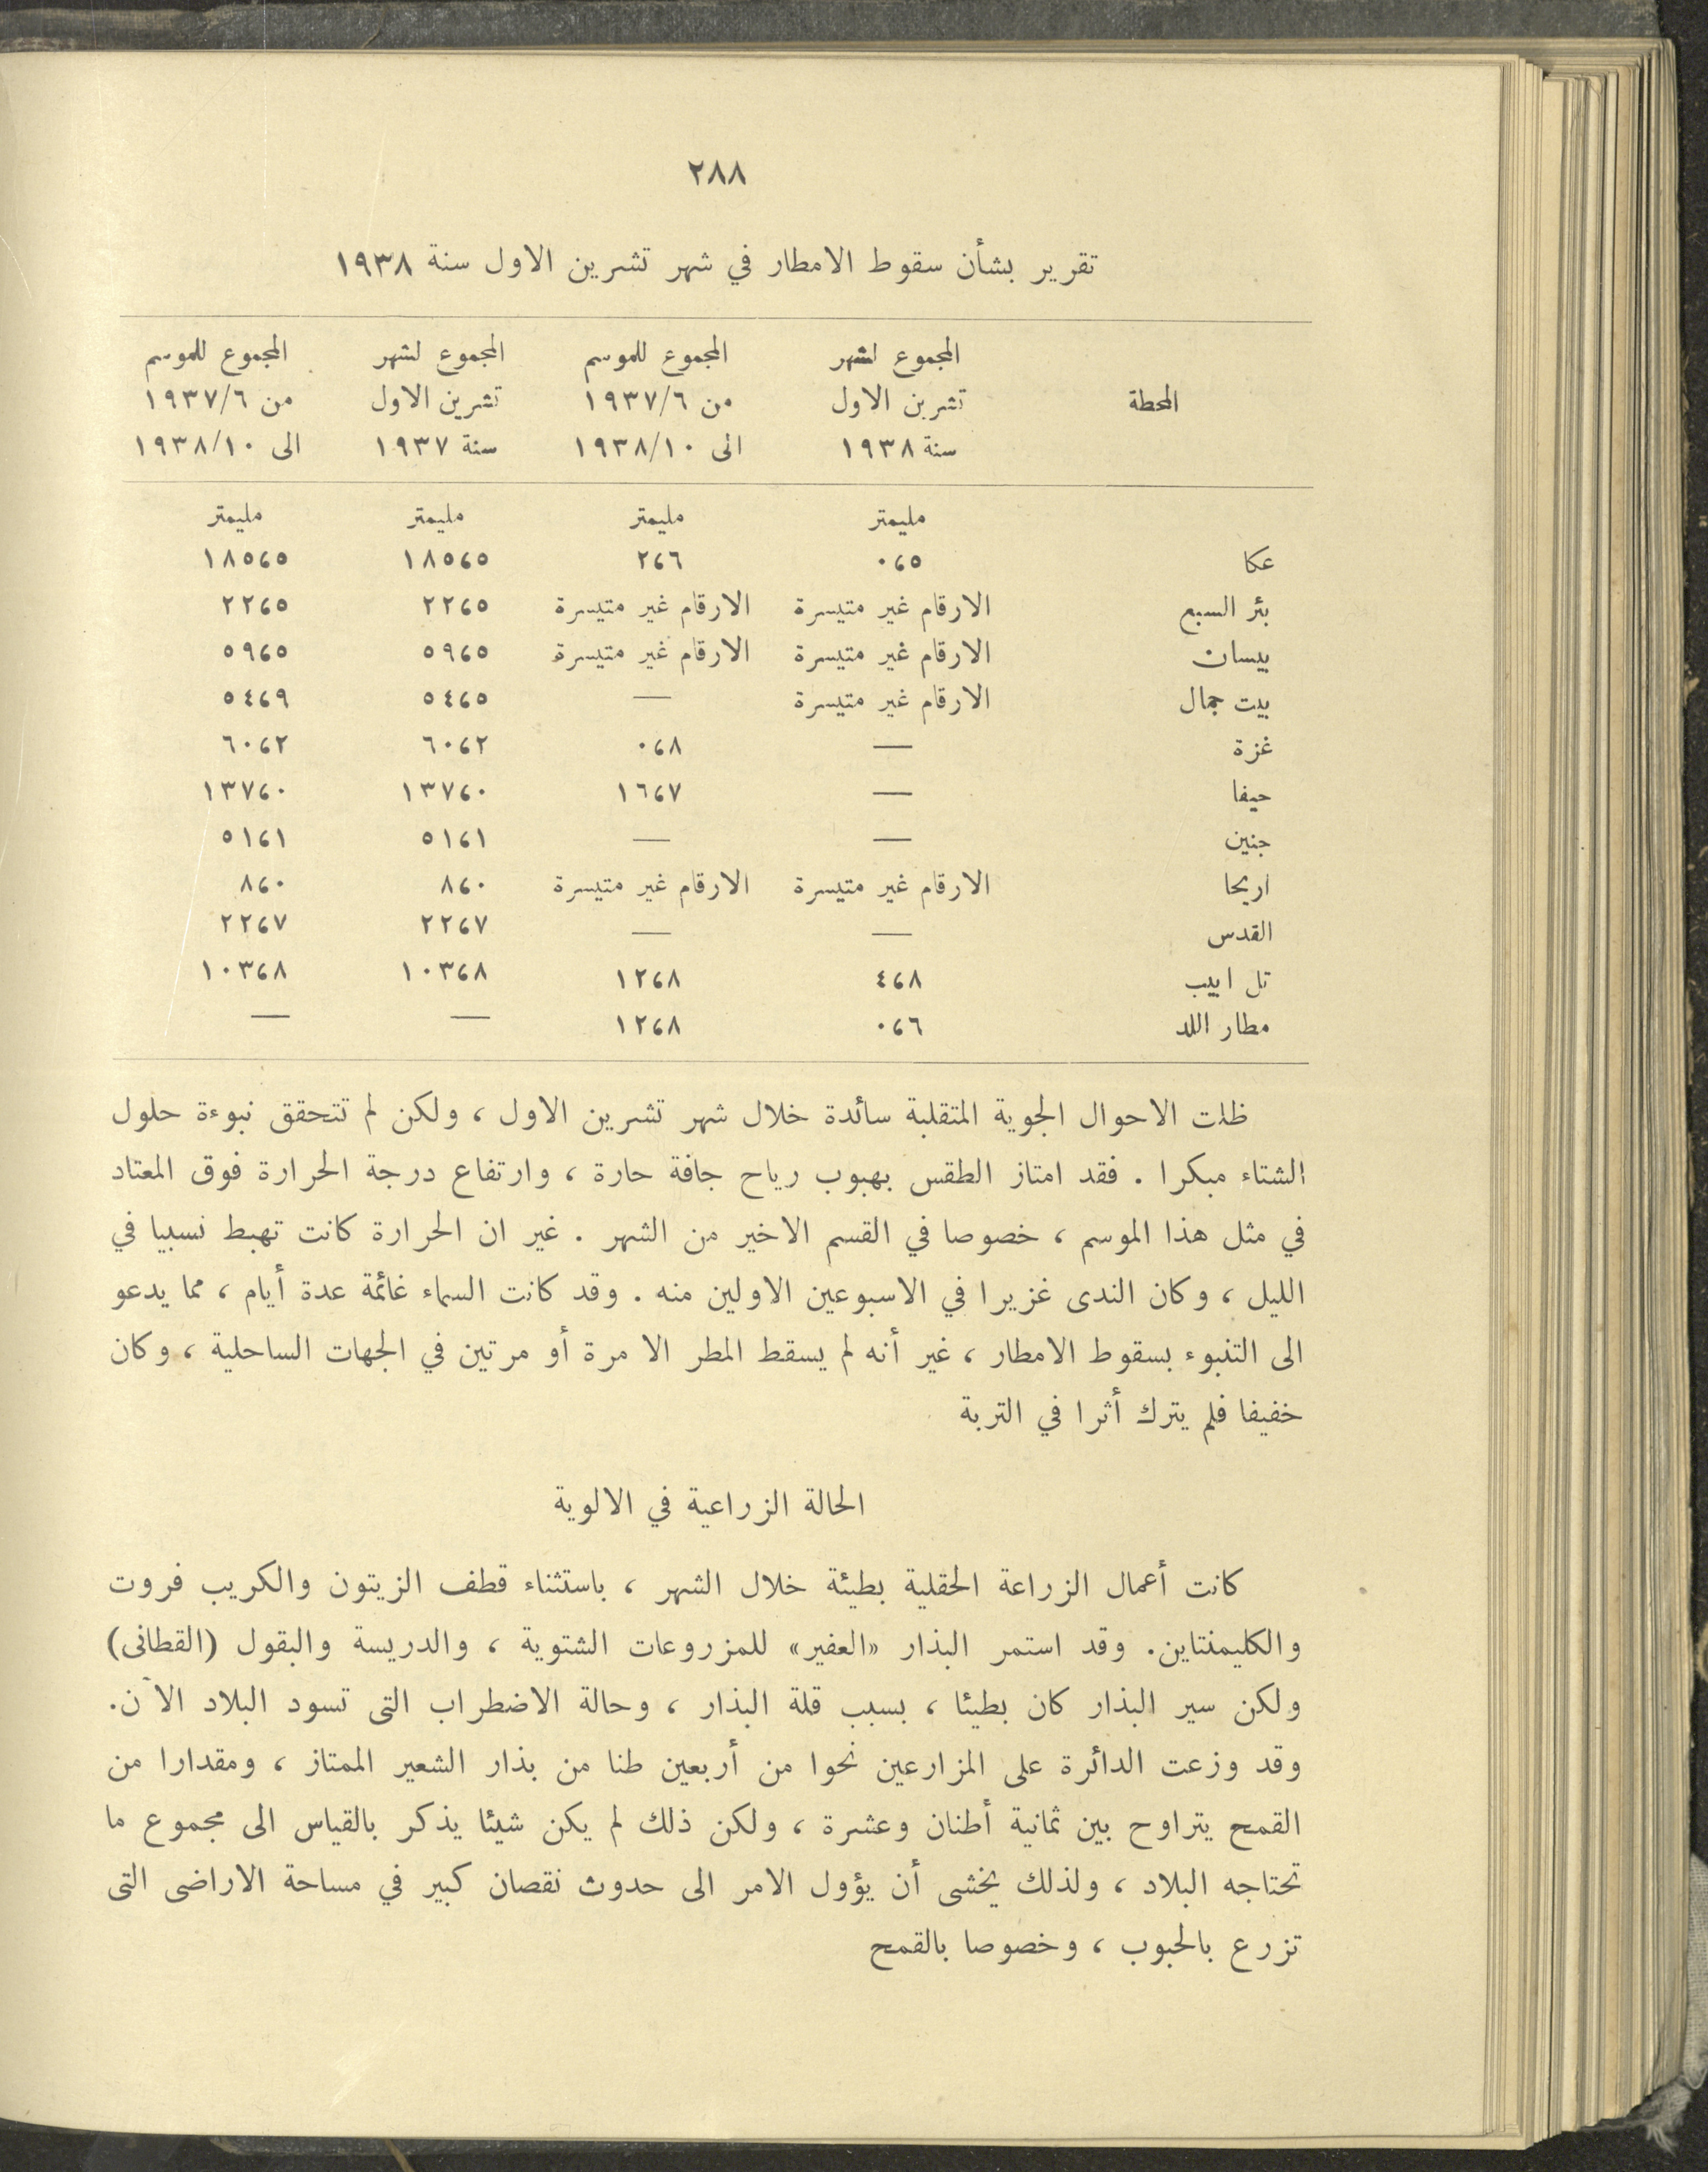 ٢٨٨
تقرير بشأن سقوط الامطار في شهر تشرين الاول سنة ١٩٣٨
المحطة المجموع لشهر تشرين الاول سنة ١٩٣٨ المجموع للموسم من ١٩٣٧/٦ الى ١٩٣٨/١٠ المجموع لشهر تشرين الاول سنة ١٩٣٧ المجموع للموسم من ١٩٣٧/٦ الى ١٩٣٨/١٠
مليمتر مليمتر مليمتر مليمتر
عكا ٠،٥ ٢،٦ ١٨٥،٥ ١٨٥،٥
بئر السبع الارقام غير متيسرة الارقام غير متيسرة ٢٢،٥ ٢٢،٥
بيسان الارقام غير متيسرة الارقام غير متيسرة ٥٩،٥ ٥٩،٥
بيت جمال الارقام غير متيسرة — ٥٤،٥ ٥٤،٩
غزة — ٠،٨ ٦٠،٢ ٦٠،٢
حيفا — ١٦،٧ ١٣٧،٠ ١٣٧،٠
جنين — — ٥١،١ ٥١،١
اريحا الارقام غير متيسرة الارقام غير متيسرة ٨،٠ ٨،٠
القدس — — ٢٢،٧ ٢٢،٧
تل ابيب ٤،٨ ١٢،٨ ١٠٣،٨ ١٠٣،٨
مطار اللد ٠،٦ ١٢،٨ — —
ظلت الاحوال الجوية المتقلبة سائدة خلال شهر تشرين الاول ، ولكن لم تتحقق نبوءة حلول
الشتاء مبكرا . فقد امتاز الطقس بهبوب رياح جافة حارة ، وارتفاع درجة الحرارة فوق المعتاد
في مثل هذا الموسم ، خصوصا في القسم الاخير من الشهر . غير ان الحرارة كانت تهبط نسبيا في
الليل ، وكان الندى غزيرا في الاسبوعين الاولين منه . وقد كانت السماء غائمة عدة أيام ، مما يدعو
الى التنبوء بسقوط الامطار ، غير أنه لم يسقط المطر الا مرة أو مرتين في الجهات الساحلية ، وكان
خفيفا فلم يترك أثرا في التربة
الحالة الزراعية في الالوية
كانت أعمال الزراعة الحقلية بطيئة خلال الشهر ، باستثناء قطف الزيتون والكريب فروت
والكليمنتاين. وقد استمر البذار «العفير» للمزروعات الشتوية ، والدريسة والبقول (القطانى)
ولكن سير البذار كان بطيئا ، بسبب قلة البذار ، وحالة الاضطراب التى تسود البلاد الآن.
وقد وزعت الدائرة على المزارعين نحوا من أربعين طنا من بذار الشعير الممتاز ، ومقدارا من
القمح يتراوح بين ثمانية أطنان وعشرة ، ولكن ذلك لم يكن شيئا يذكر بالقياس الى مجموع ما
تحتاجه البلاد ، ولذلك يخشى أن يؤول الامر الى حدوث نقصان كبير في مساحة الاراضى التى
تزرع بالحبوب ، وخصوصا بالقمح